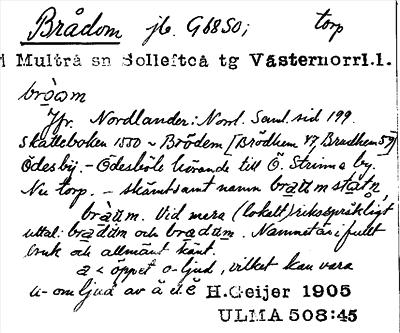 Brådom jb. G6850; torp
i Multrå sn Sollefteå tg Västernorrl.l.
bròam
Jfr. Nordlander: Norrl. Saml. sid 199.
Skatteboken 1550 ~ Brödem [Brödhem 47, Brudhem 57]
Ödesbÿ. – Ödesböle hörande till Ö. Strinna by.
Nu torp. – skämtsamt namn
bràam. Vid mera (lokalt) riksspråkligt
uttal: och Namnet är i fullt
bruk och allmänt känt.
a < öppet o-ljud, vilket kan vara
u-omljud av
H.Geijer 1905
ULMA 508:45